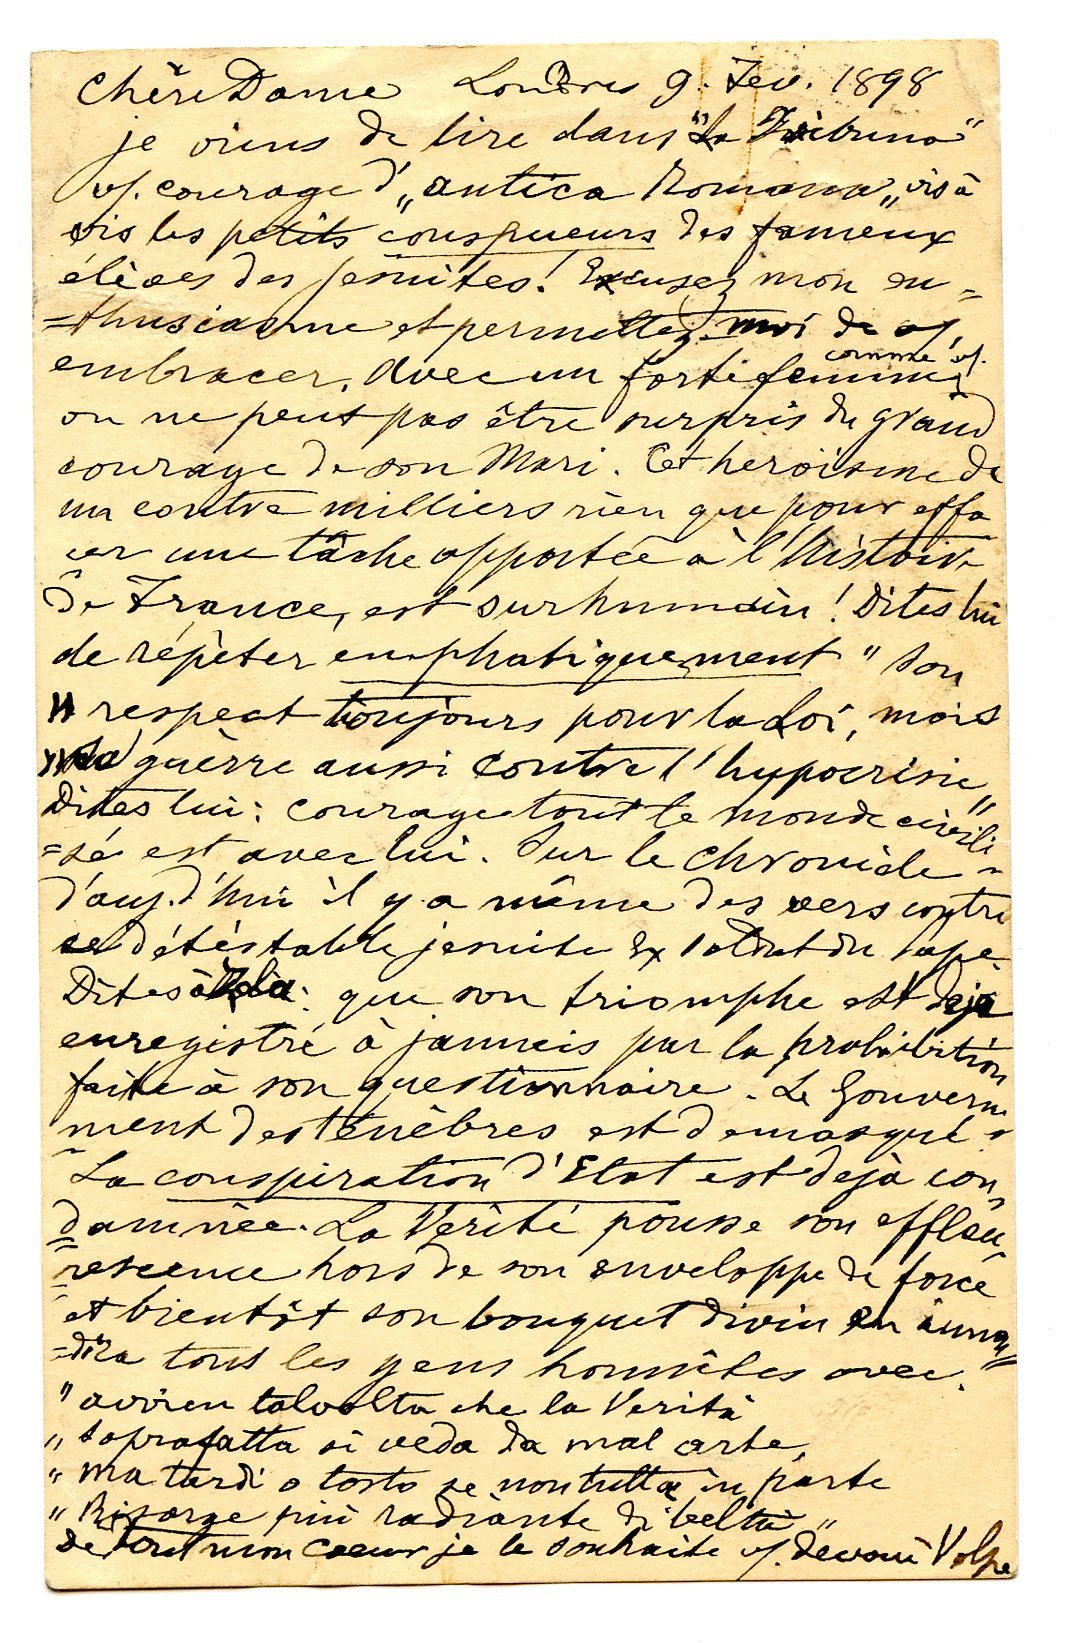 Chère Dame Londres 9. Fev. 1898
je viens de lire dans "La Tribuna"
vf. courage d' „antica Romana„ vis à
vis les petits conspueurs des fameux
élèves des jesuites! Excusez mon en=
=thusiasme et permettez-moi de vf.
embracer. Avec un forte femme comme vf.
on ne peut pas être surpris du grand
courage de son Mari. Cet heroisme de
un contre milliers rien que pour effa
cer une tâche apportée à l'histoire
de France, est surhumain! Dites lui
de répèter emphatiquement " Son
" respect toujours pour la Loi, mais
" sa guèrre aussi contre l'hypocrisie „
Dites lui: courage tout le monde civili
=sé est avec lui. Sur le Chronicle
d'auj.d'hui il y a même des vers contre
ce détéstable jesuite Ex soldat du Pape.
Dites à Zola: que son triomphe est dejà
enregistré à jammeis par la prohibition
faite à son questionnaire. Le Gouverne
ment des ténèbres est demasqué.
La conspiration d'Etat est dejà con=
=damnèe. La Verité pousse son effleu=
=rescence hors de son enveloppe de force
et bientôt son bouquet divin en
=dira tous les gens honnêtes avec.
" avvien talvolta che la Verità
„ soprafatta si veda da mal arte,
" ma tardi o tosto se non tutta in parte
" Risorge più radiante di beltà „
De tout mon coeur je le souhaite vf. devoué Volpe